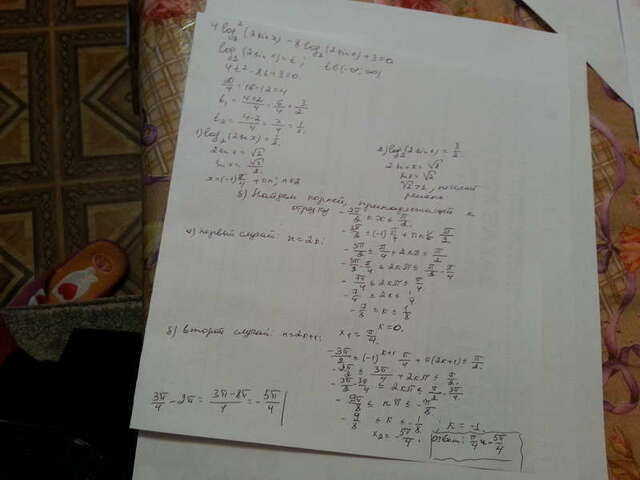 4log₂²(2sinx) - 8log₂(2sinx)+3=0.
log₂(2sinx)=t; t∈(-∞;∞)
4t²-8t+3=0.
D/4=16-12=4
t₁=(4+2)/4=6/4=3/2
t₂=(4-2)/4=2/4=1/2.
1) log₂(2sinx)=1/2.
2sinx=√2
sinx=√2/2.
x=(-1)ⁿ π/4+πn; n∈Z
2) log₂(2sinx)=3/2
2sinx=√8
sinx=√2
√2>1,
б) Найдем корней, принадлежащей к
отрезку -3π/2≤x≤π/2.
-3π/2≤(-1)ⁿ π/4+πn≤π/2
а) первый случай: n=2k;
-3π/2≤π/4+2kπ≤π/2
-3π/2-π/4≤2kπ≤π/2-π/4
-7π/4≤2kπ≤π/4
-7/4≤2k≤1/4
-7/8≤k≤1/8
k=0.
x₁=π/4.
б) второй случай: n=2k+1;
-3π/2≤(-1)^(2k+1) π/4+π(2k+1)≤π/2.
-3π/2≤3π/4+2kπ≤π/2.
-3π/2-3π/4≤2kπ≤π/2-3π/4
-9π/8≤kπ≤-π/8
-9/8≤k≤-1/8; k=-1
x₂=-5π/4.
3π/4-2π=(3π-8π)/4=-5π/4
Ответ: π/4 и -5π/4